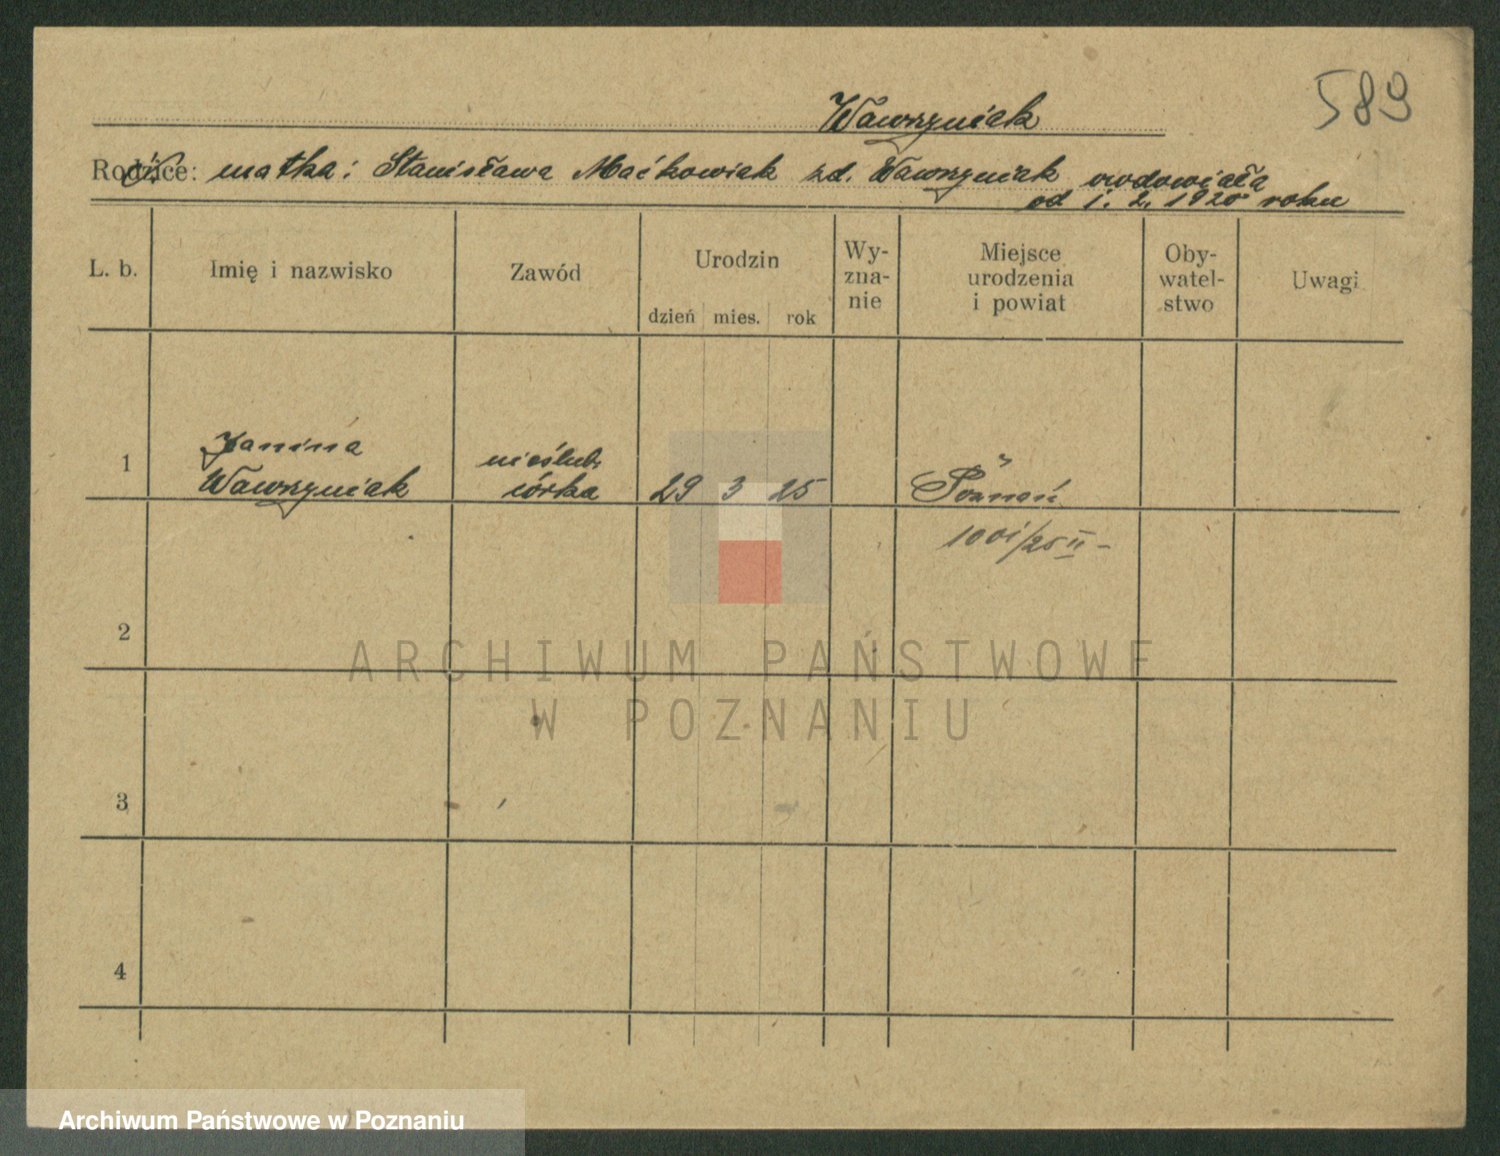 589
Wawrzyniak
Rodzice: matka: Stanisława Maćkowiak zd. Wawrzyniak owdowiała
od 1. 2. 1920 roku
L. b. Imię i nazwisko Zawód Urodzin Wy-zna-nie Miejsce urodzenia i powiat Oby-watel-stwo Uwagi
dzień mies. rok
Janina nieślub.
1 Wawrzyniak córka 29 3 25 Poznań
1001/25 II -
2
3
4
ARCHIWUM PAŃSTWOWE
W POZNANIU
Archiwum Państwowe w Poznaniu